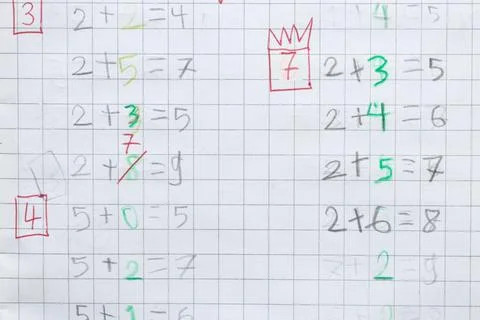 3 2+2=4
2+5=7
2+3=5
7
2+8=9
4 5+0=5
5+2=7
5+1=6
4=5
7 2+3=5
2+4=6
2+5=7
2+6=8
2+2=9